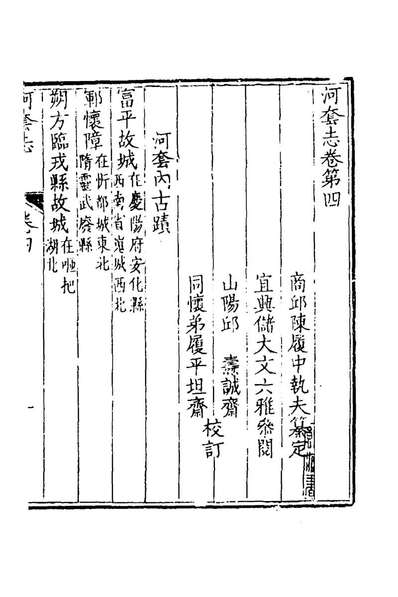 河套志卷第四
商邱陳履中執夫纂定
宜興儲大文六雅參閱
山陽邱壽誠齋
同懷弟履平坦齋
校訂
河套內古蹟
富平故城在慶陽府安化縣西南省嵬城西北
鄣懷障在忻都城東北隋靈武廢縣
朔方臨戎縣故城在啞把湖北
河套志
卷四
一